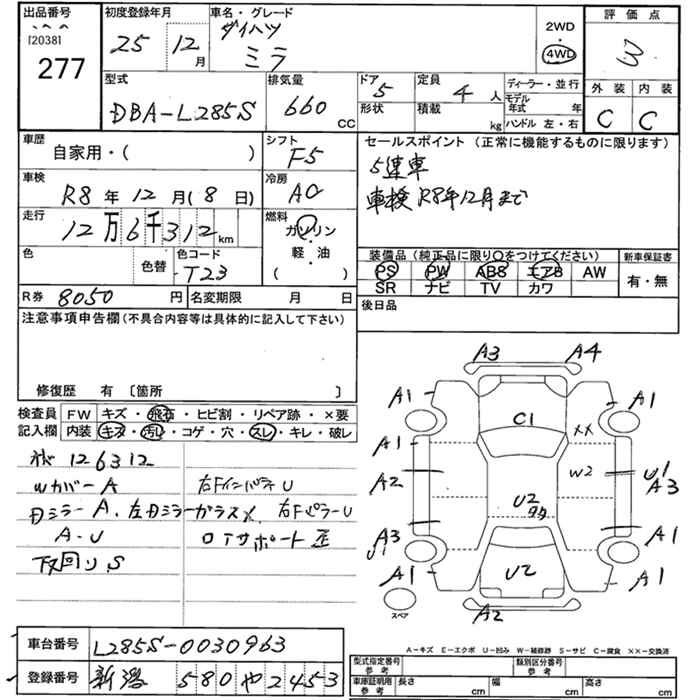 出品番号
[2038]
277
初度登録年月
25 年 12 月
車名・グレード
ダイハツ
ミラ
2WD
4WD
評価点
W
外装 内装
C C
型式
DBA-L285S
排気量
660 CC
ドア 5
形状
定員 4 人
積載 kg
ディーラー・並行
モデル年式 年
ハンドル 左・右
車歴
自家用・( )
シフト
F5
セールスポイント(正常に機能するものに限ります)
5速車
車検R8年12月まで
車検
R8年12月(8日)
冷房
AC
走行
12万6千312km
燃料
ガソリン
軽・油
( )
色
色替
色コード
T23
装備品(純正品に限り○をつけてください)
PS PW ABS エアB AW
SR ナビ TV カワ
新車保証書
有・無
R券 8050 円
名変期限 月 日
後日品
注意事項申告欄(不具合内容等は具体的に記入して下さい)
修復歴 有〔箇所 〕
検査員記入欄
FW キズ・飛石・ヒビ割・リペア跡・×要
内装 キズ・汚レ・コゲ・穴・スレ・キレ・破レ
126312
WカバーA
右FインパネU
右FピラーU
A・U
ロアサポート歪
下回りS
A3 A4
A1 A1
C1
A1 XX
A2 W2 U1
A3
U2
A3 A1
U1
A1 U2 A1
A2
スペア
A-キズ E-エクボ U-凹み W-補修跡 S-サビ C-腐食 ××-交換済
車台番号
L285S-0030963
登録番号
新潟 580 や 2453
型式指定番号 参考
類別区分番号 参考
車庫証明用 参考
長さ cm
幅 cm
高さ cm